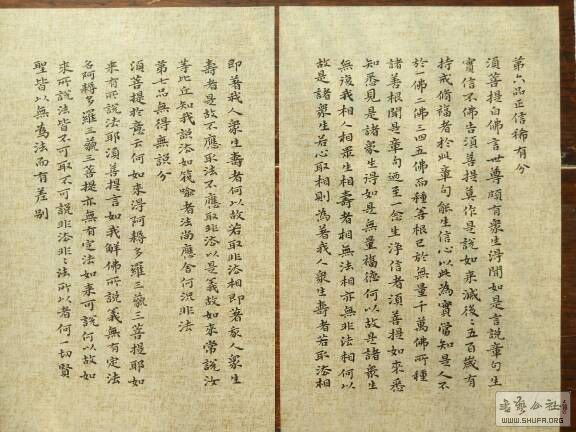 第六品正信稀有分
須菩提白佛言世尊頗有衆生得聞如是言說章句生
實信不佛告須菩提莫作是說如來滅後々五百歲有
持戒脩福者於此章句能生信心以此為實當知是人不
於一佛二佛三四五佛而種善根已於無量千萬佛所種
諸善根聞是章句廼至一念生淨信者須菩提如來悉
知悉見是諸衆生得如是無量福德何以故是諸衆生
無復我相人相衆生相壽者相無法相亦無非法相何以
故是諸衆生若心取相則為著我人衆生壽者若取法相
即著我人衆生壽者何以故若取非法相即著我人衆生
壽者是故不應取法不應取非法以是義故如來常說汝
等比丘知我說法如筏喻者法尚應舍何況非法
第七品無得無說分
須菩提於意云何如來得阿耨多羅三藐三菩提耶如
來有所說法耶須菩提言如我解佛所說義無有定法
名阿耨多羅三藐三菩提亦無有定法如來可說何以故如
來所說法皆不可取不可說非法非々法所以者何一切賢
聖皆以無為法而有差別
WWW.SHUFA.ORG